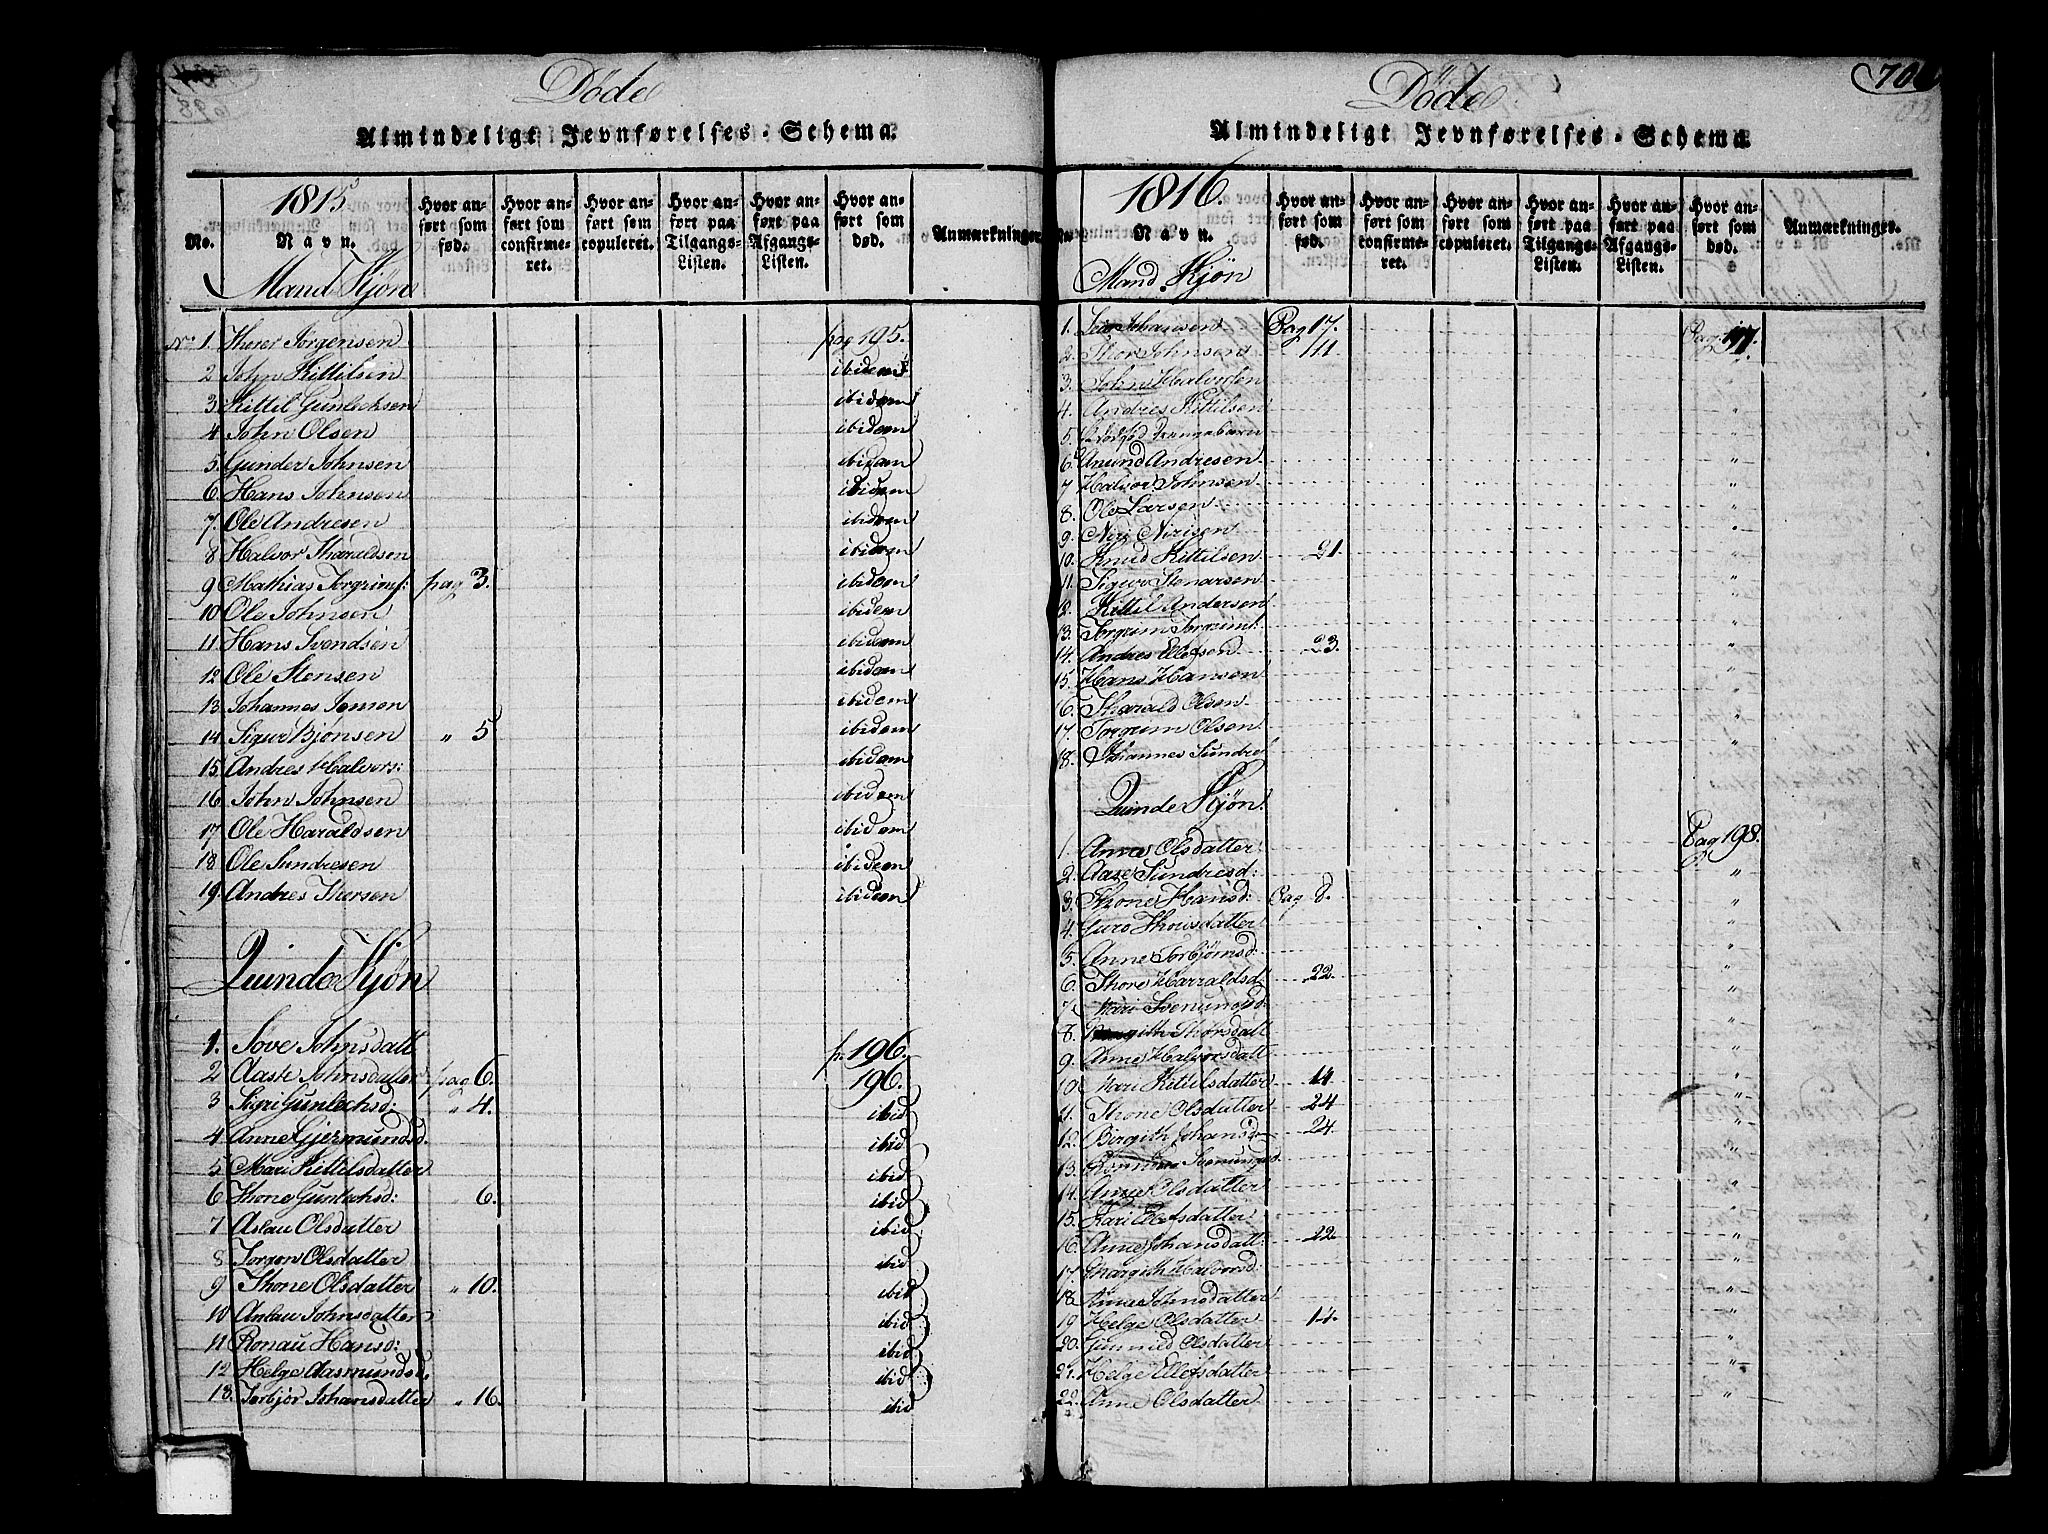 Døde
Almindeligt Jevnførelses-Schema.
1815
No.
Navn.
Hvor anført som fød.
Hvor anført som confirmeret.
Hvor anført som copuleret.
Hvor anført paa Tilgangs-Listen.
Hvor anført paa Afgangs-Listen.
Hvor anført som død.
Anmærkninger
Mand Kjøn
No 1. Thorer Jørgensen pag 195.
2 John Kittilsen ibidem
3 Kittil Gunlechsen ibidem
4 John Olsen ibidem
5. Gunder Johnsen ibidem
6. Hans Johnsen ibidem
7. Ole Andresen ibidem
8 Halvor Tharaldsen ibidem
9 Mathias Torgrims: pag 3. ibidem
10 Ole Johnsen ibidem
11 Hans Svendsen ibidem
12 Ole Stensen ibidem
13 Johannes Jensen ibidem
14 Sigur Bjønsen " 5 ibidem
15 Andres Halvors: ibidem
16 John Johnsen ibidem
17 Ole Haraldsen ibidem
18 Ole Sundresen ibidem
19. Andres Thersen ibidem
Quinde Kjøn
1. Tove Johnsdatt p. 196.
2 Aaste Johnsdatter pag 6. 196.
3 Sigri Gunlechsd: " 4. ibid
4 Anne Gjermundsd. ibid
5 Mari Kittilsdatter ibid
6 Thone Gunlechsd: " 6. ibid
7 Aslau Olsdatter ibid
8 Jorgen Olsdatter ibid
9 Thone Olsdatter " 10. ibid
10 Anlau Johnsdatter ibid
11 Ronau Hansd: ibid
12 Helge Aasmundsd. ibid
13. Torbjør Johansdatter " 16. ibid
Døde
70
Almindeligt Jevnførelses-Schema
1816
No.
Navn.
Hvor anført som fød.
Hvor anført som confirmeret.
Hvor anført som copuleret.
Hvor anført paa Tilgangs-Listen.
Hvor anført paa Afgangs-Listen.
Hvor anført som død.
Anmærkninger.
Mand Kjøn
1. Johansen Pag 17. Pag 197.
2. Thor Johnsen 111 "
3. John Halvorsen "
4. Andres Kittilsen "
5. Dødfød Drengebarn "
6. Anund Andresen "
7 Halvor Johnsen "
8. Ole Larsen "
9. Niri Nirisen "
10. Knud Kittilsen 21. "
11. Sigur Stenarsen "
12. Kittil Andersen "
13. Torgrim Torgrims: "
14. Andres Ellefsen 23. "
15. Hans Hansen "
16. Tharald Olsen "
17. Torgrim Olsen "
18. Johannes Sundre "
Quinde Kjøn
1. Anne Olsdatter Pag 198.
2. Aase Sundresd: "
3. Thone Hansd: Pag 8. "
4. Guro Thorsdatter "
5. Anne Torbjørnsd: "
6. Thore Harraldsd. 22. "
7. Mari Svenungsd: "
8. Thorsdatt "
9. Anne Halvorsdatt "
10 Mari Kittilsdatter 14 "
11. Thone Olsdatter 24 "
12. Birgith Johansd 24. "
13. Svenungsd. "
14. Anne Olsdatter "
15. Kari Ellefsdatter "
16. Anne Johansdatt: 22. "
17. Margith Halvorsd: "
18. Anne Johnsdatter "
19. Helge Olsdatter 14. "
20. Gunnild Olsdatter "
21. Helge Ellefsdatter "
22. Anne Olsdatter "